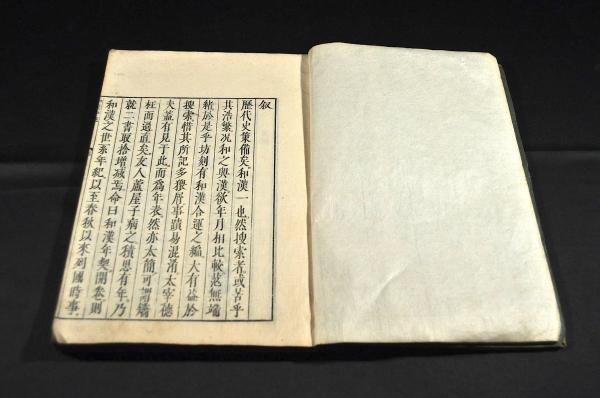 叙
歷代史策備矣和漢一也然搜索者或苦乎
其浩繁况和之與漢欲年月相比較茫無端
緒於是乎坊刻有和漢合運之編大有益於
搜索惜其所記多猥屑事蹟易混淆太宰德
夫蓋有見于此而爲年表然亦太簡可謂矯
枉而過直矣友人蘆屋子病之積思有年乃
就二書取捨增减焉命曰和漢年契開卷則
和漢之世系年紀以至春秋以來列國時事